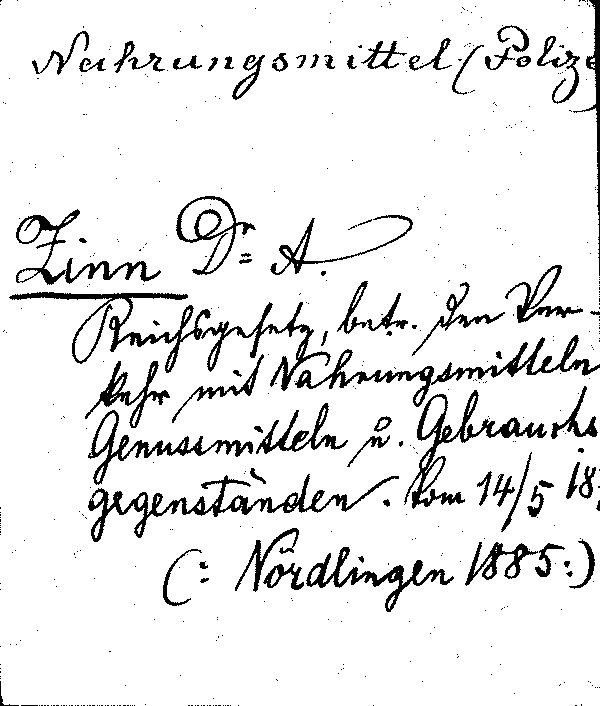 Nahrungsmittel (Polize
Zinn Dr A.
Reichsgesetz, betr. den Ver-
kehr mit Nahrungsmitteln
Genussmitteln u. Gebrauchs
gegenständen. Vom 14/5 18
(: Nördlingen 1885:)